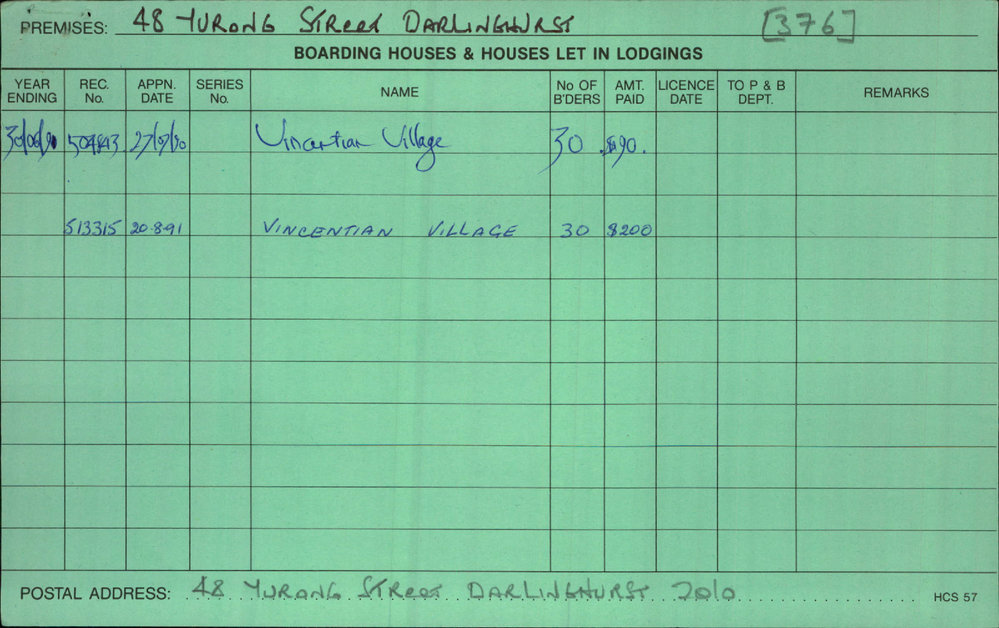 PREMISES: 48 YURONG STREET DARLINGHURST [376]
BOARDING HOUSES & HOUSES LET IN LODGINGS
YEAR ENDING REC. No. APPN. DATE SERIES No. NAME No OF B'DERS AMT. PAID LICENCE DATE TO P & B DEPT. REMARKS
30/06/91 504843 27/07/90 Vincentian Village 30 $90.
513315 20.8.91 VINCENTIAN VILLAGE 30 $200
POSTAL ADDRESS: 48 YURONG STREET DARLINGHURST 2010 HCS 57